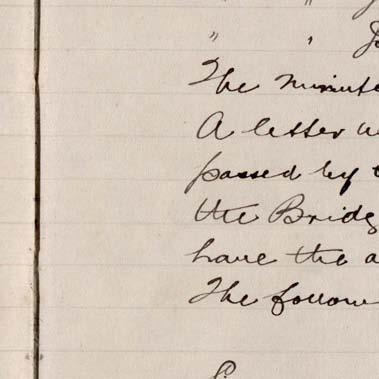 " "
" "
The minute
A letter w
passed by
the Bridg
have the a
The follow